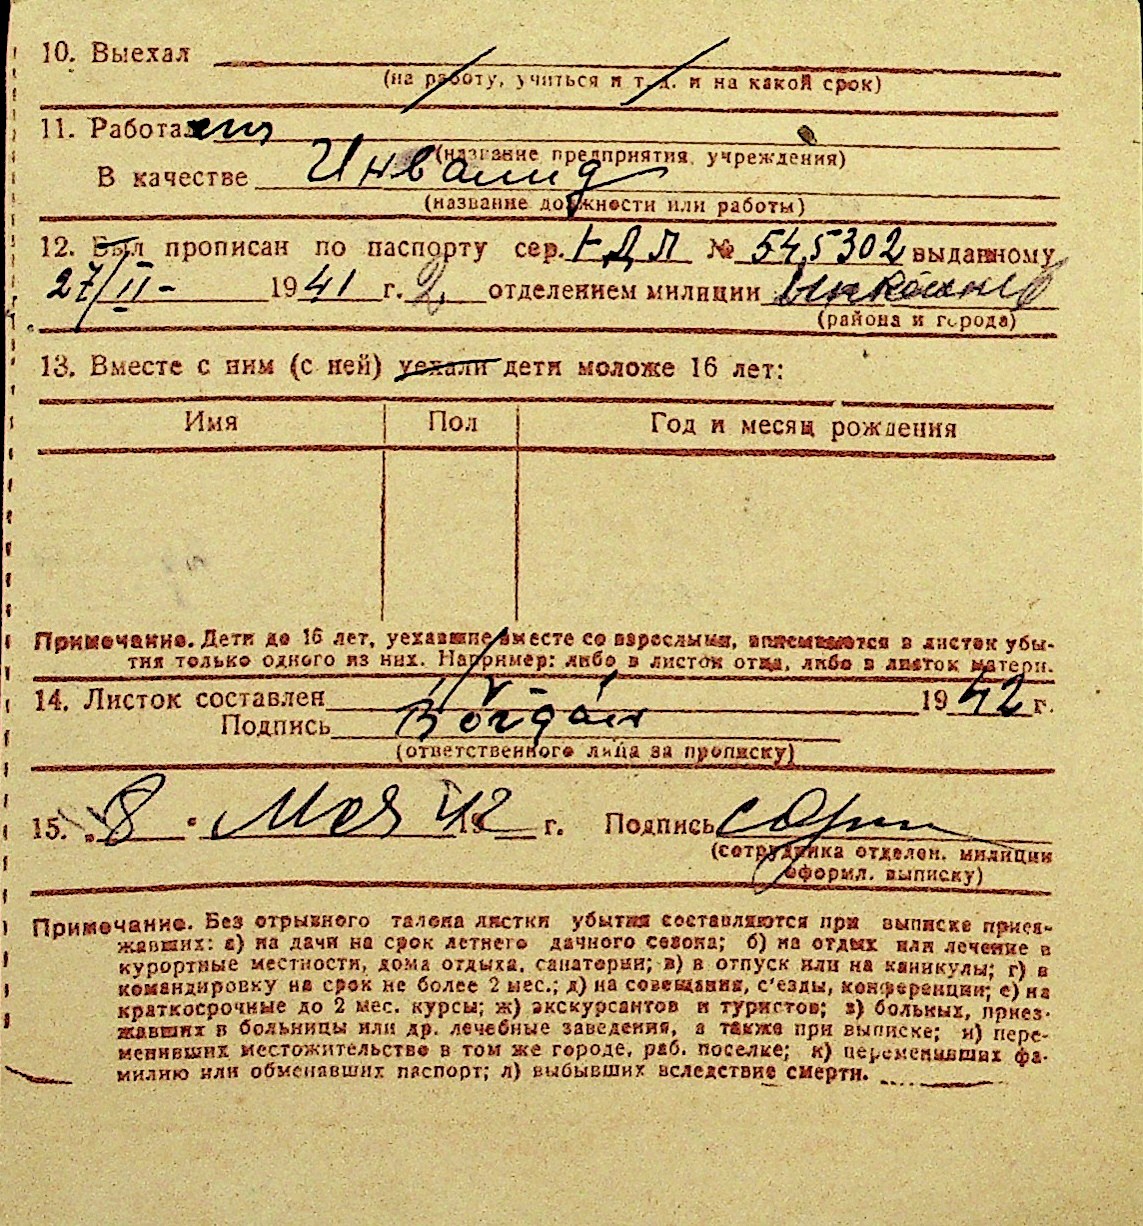 10. Выехал
(на работу, учиться и т. д. и на какой срок)
11. Работа
(название предприятия, учреждения)
В качестве Инвалид
(название должности или работы)
12. Был прописан по паспорту сер. № 545302 выданному
27/II - 1941 г. 2 отделением милиции
(района и города)
13. Вместе с ним (с ней) уехали дети моложе 16 лет:
Имя Пол Год и месяц рождения
Примечание. Дети до 16 лет, уехавшие вместе со взрослыми, вписываются в листок убы-
тия только одного из них. Например: либо в листок отца, либо в листок матери.
14. Листок составлен 1942 г.
Подпись
(ответственного лица за прописку)
15. „8 " Мая 42 19 г. Подпись
(сотрудника отделен. милиции
оформл. выписку)
Примечание. Без отрывного талона листки убытия составляются при выписке приез-
жавших: а) на дачи на срок летнего дачного сезона; б) на отдых или лечение в
курортные местности, дома отдыха, санатории; в) в отпуск или на каникулы; г) в
командировку на срок не более 2 мес.; д) на совещания, с'езды, конференции; е) на
краткосрочные до 2 мес. курсы; ж) экскурсантов и туристов; з) больных, приез-
жавших в больницы или др. лечебные заведения, а также при выписке; и) пере-
менивших местожительство в том же городе, раб. поселке; к) переменивших фа-
милию или обменавших паспорт; л) выбывших вследствие смерти.